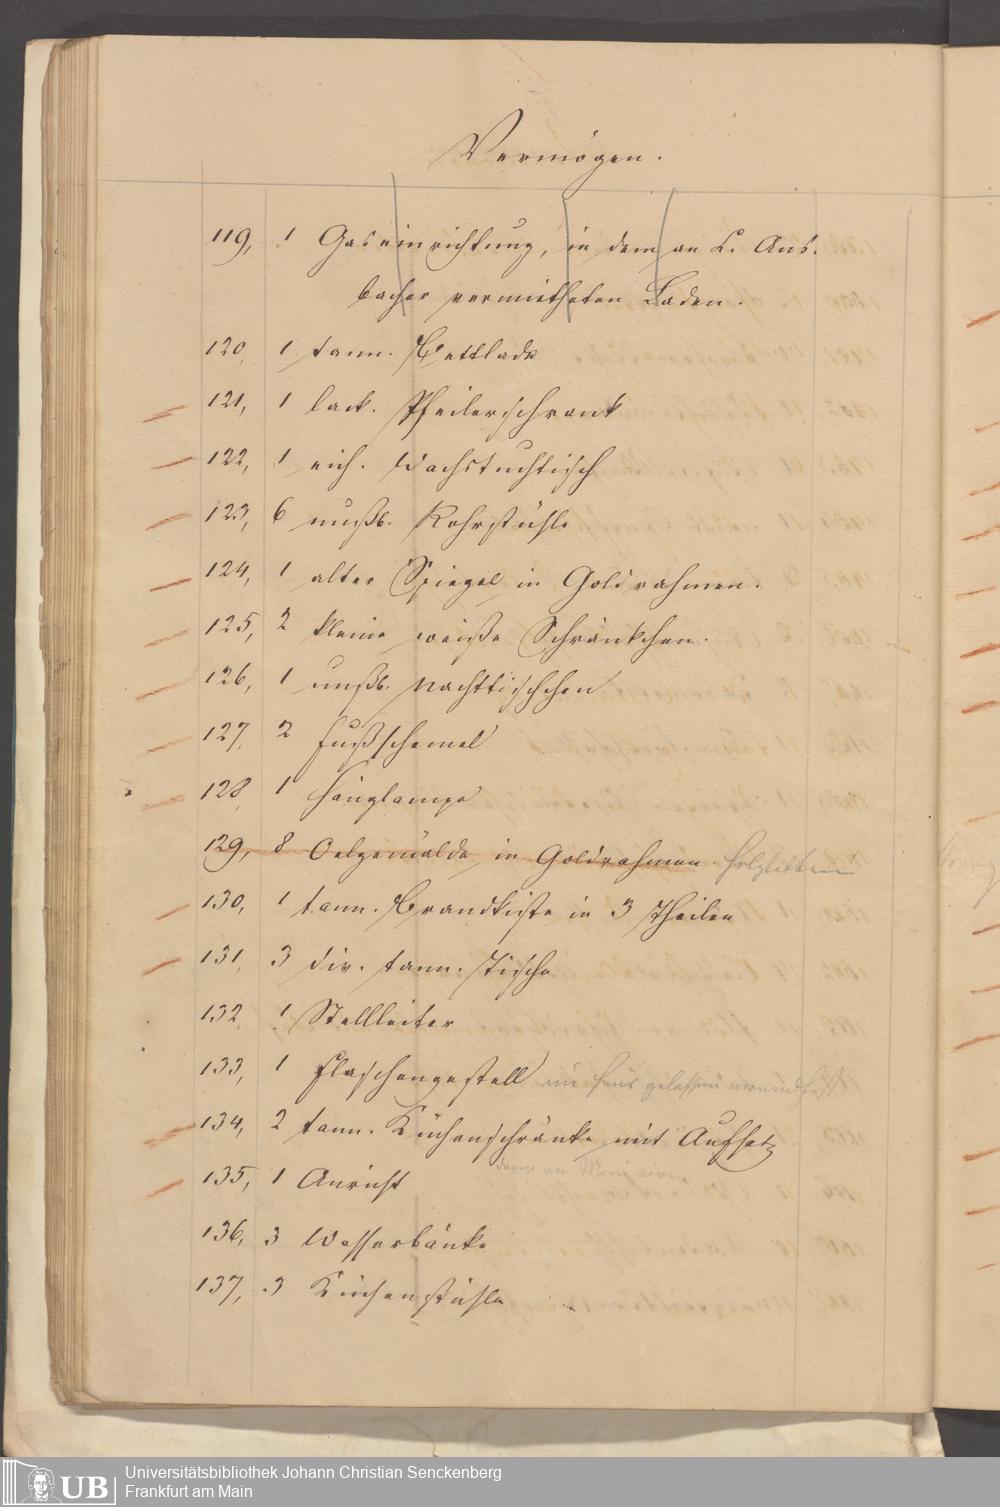 Vermögen.
119, 1 Gaseinrichtung, in dem an L. Ans-
bacher vermietheten Laden.
120, 1 tann. Bettlade
121, 1 lack. Pfeilerschrank
122, 1 eich. Wachstuchtisch
123, 6 nußb. Rohrstühle
124, 1 alter Spiegel in Goldrahmen.
125, 2 kleine weiße Schränkchen.
126, 1 nußb. Nachttischchen
127, 2 Fußschemel
128, 1 Hänglampe
129, 8 Oelgemälde in Goldrahmen
130, 1 tann. Brandkiste in 3 Theilen
131, 3 div. tann. Tische
132, 1 Stellleiter
133, 1 Flaschengestell im Haus gelassen
134, 2 tann. Küchenschränke mit Aufsatz
135, 1 Anricht
136, 3 Wasserbänke
137, 3 Küchenstühle
UB Universitätsbibliothek Johann Christian Senckenberg
Frankfurt am Main